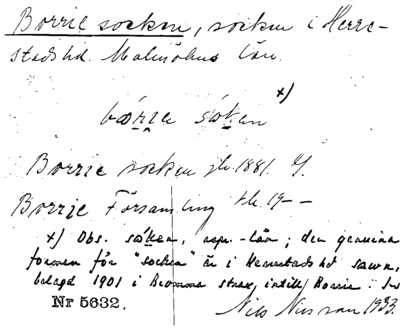 Borrie socken, socken i Herre-
stads hd. Malmöhus län.
x)
bórrie sóken
Borrie socken jb. 1881.
Borrie Församling tk. 19--
x) Obs. sóken, resp. -län; den genuina
formen för "socken" är i Herrestads hd sawn,
belagd 1901 i Bromma strax intill Borrie i
Nr 5632. Nils Nilsson 1933.